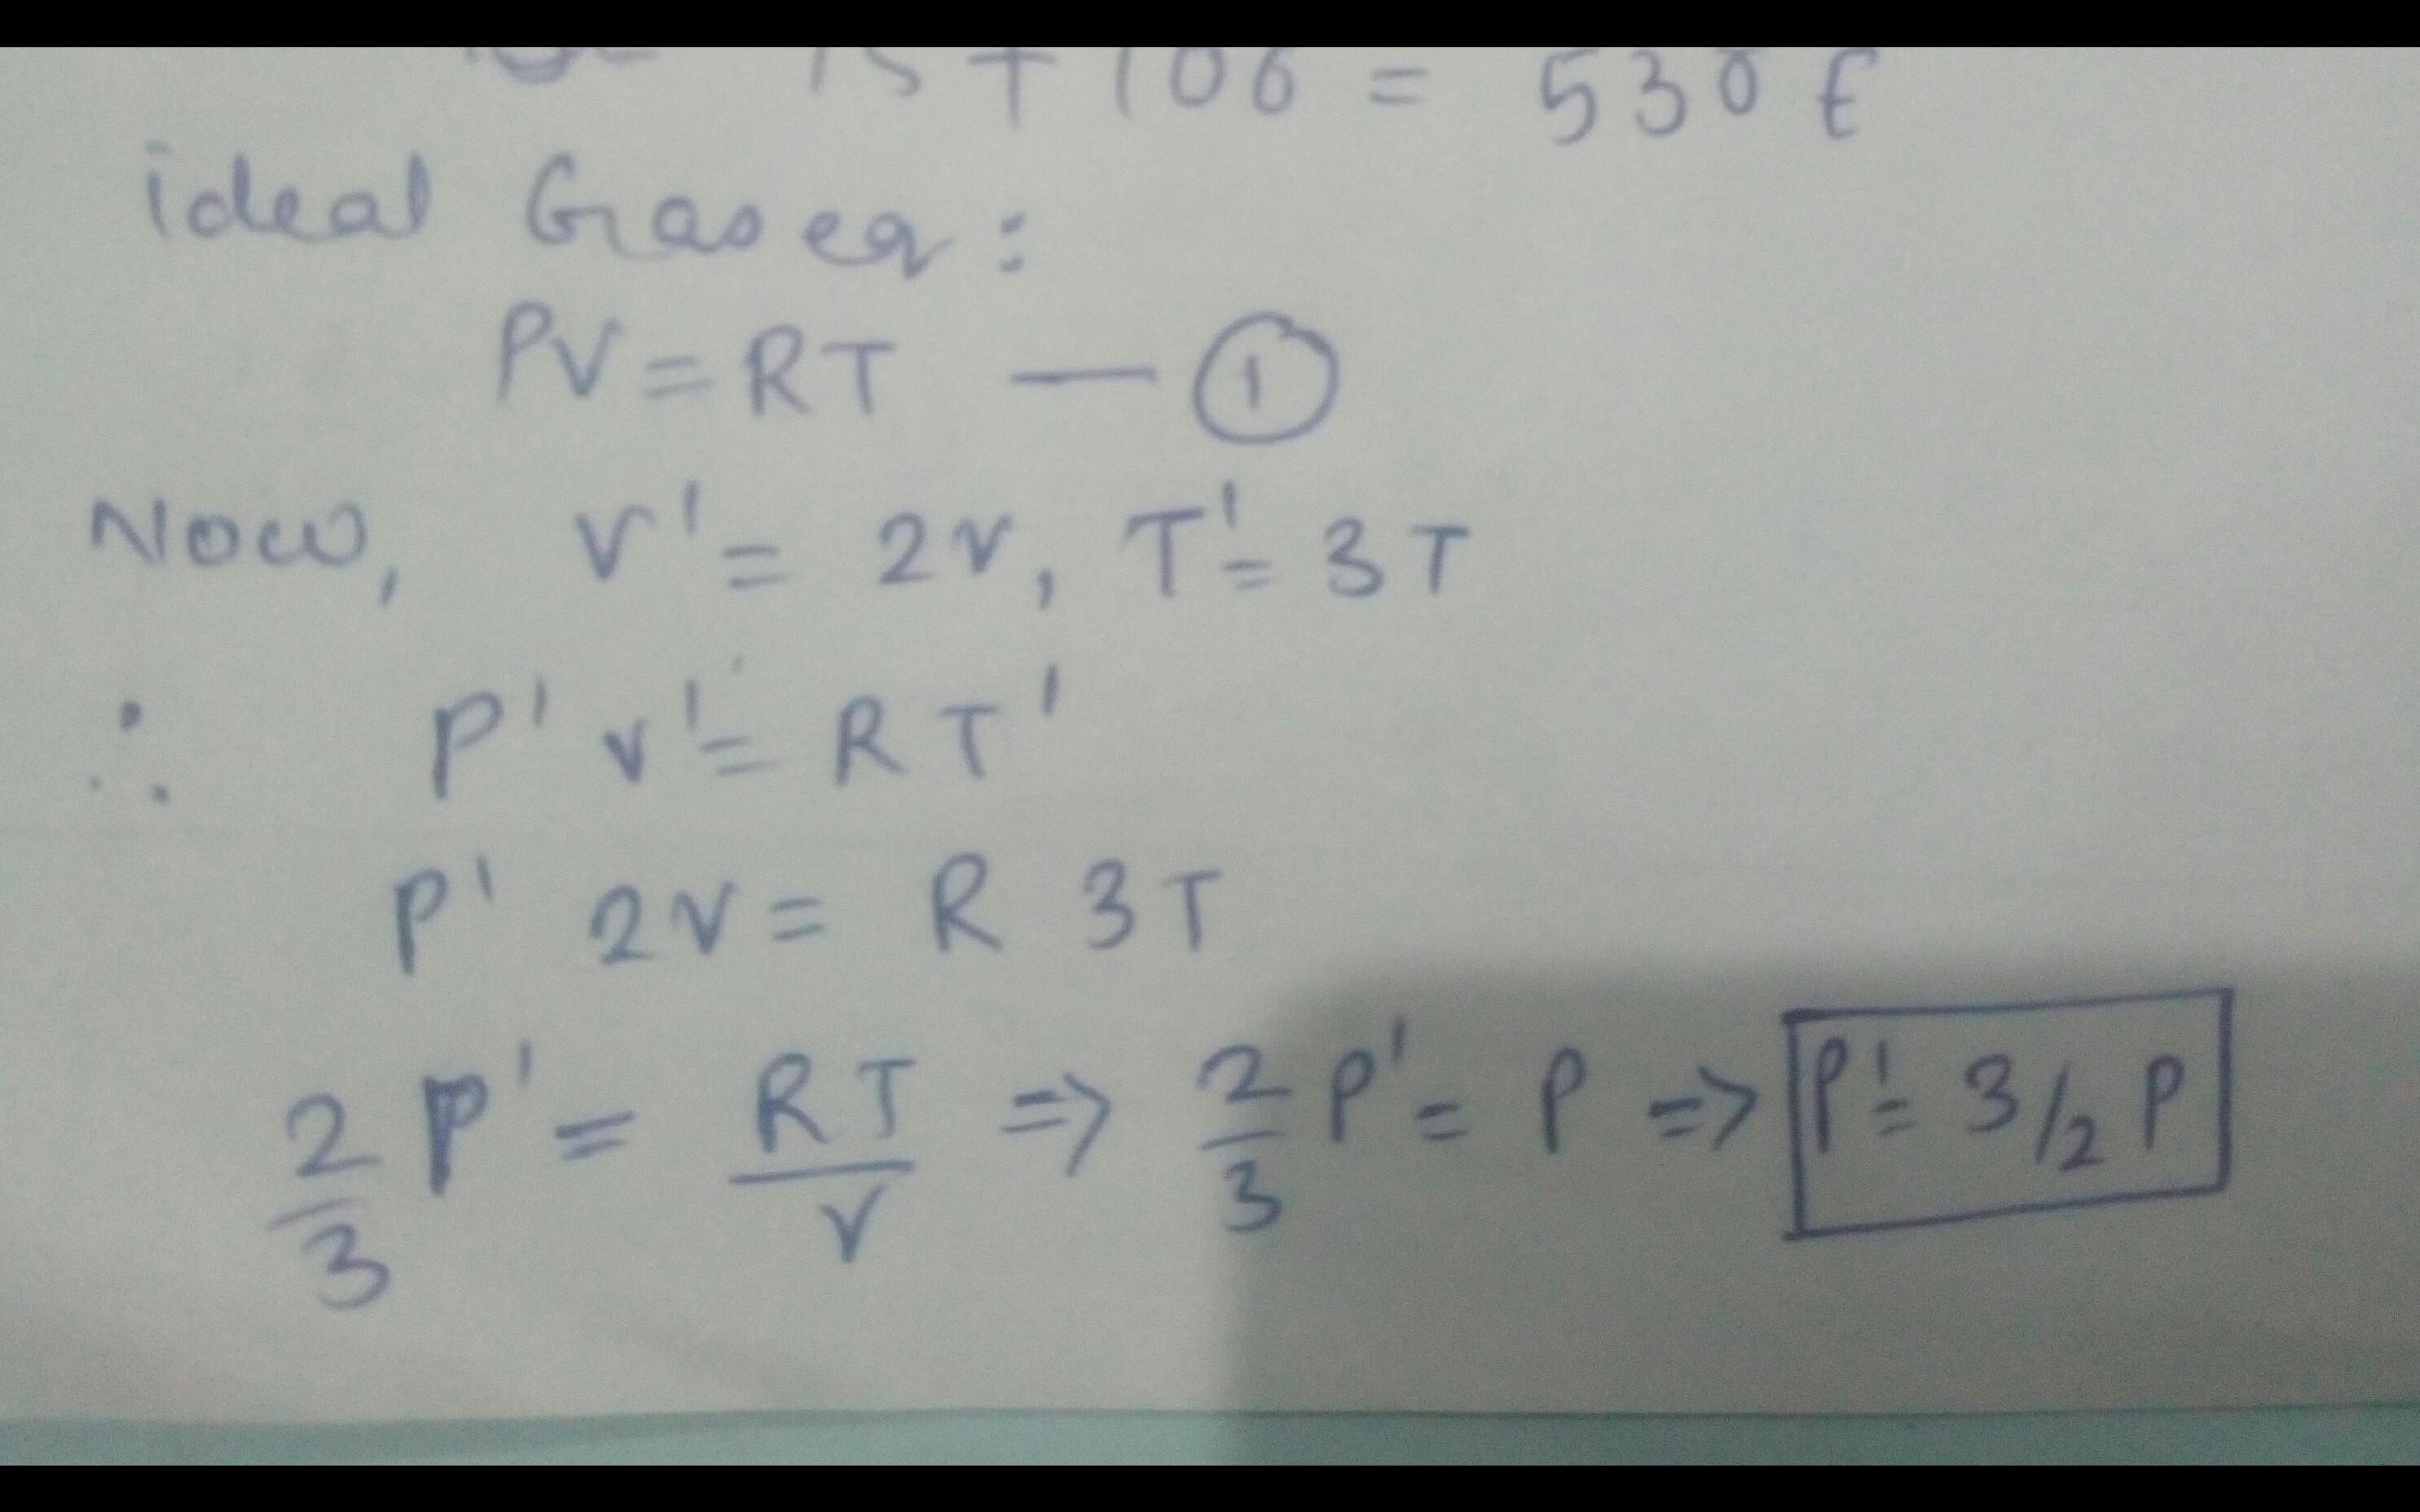 15 + 106 = 530 €
ideal Gas eq:
PV = RT — ①
Now, V' = 2V, T' = 3T
∴ P' V' = R T'
P' 2V = R 3T
2/3 P' = RT/V => 2/3 P' = P => P' = 3/2 P